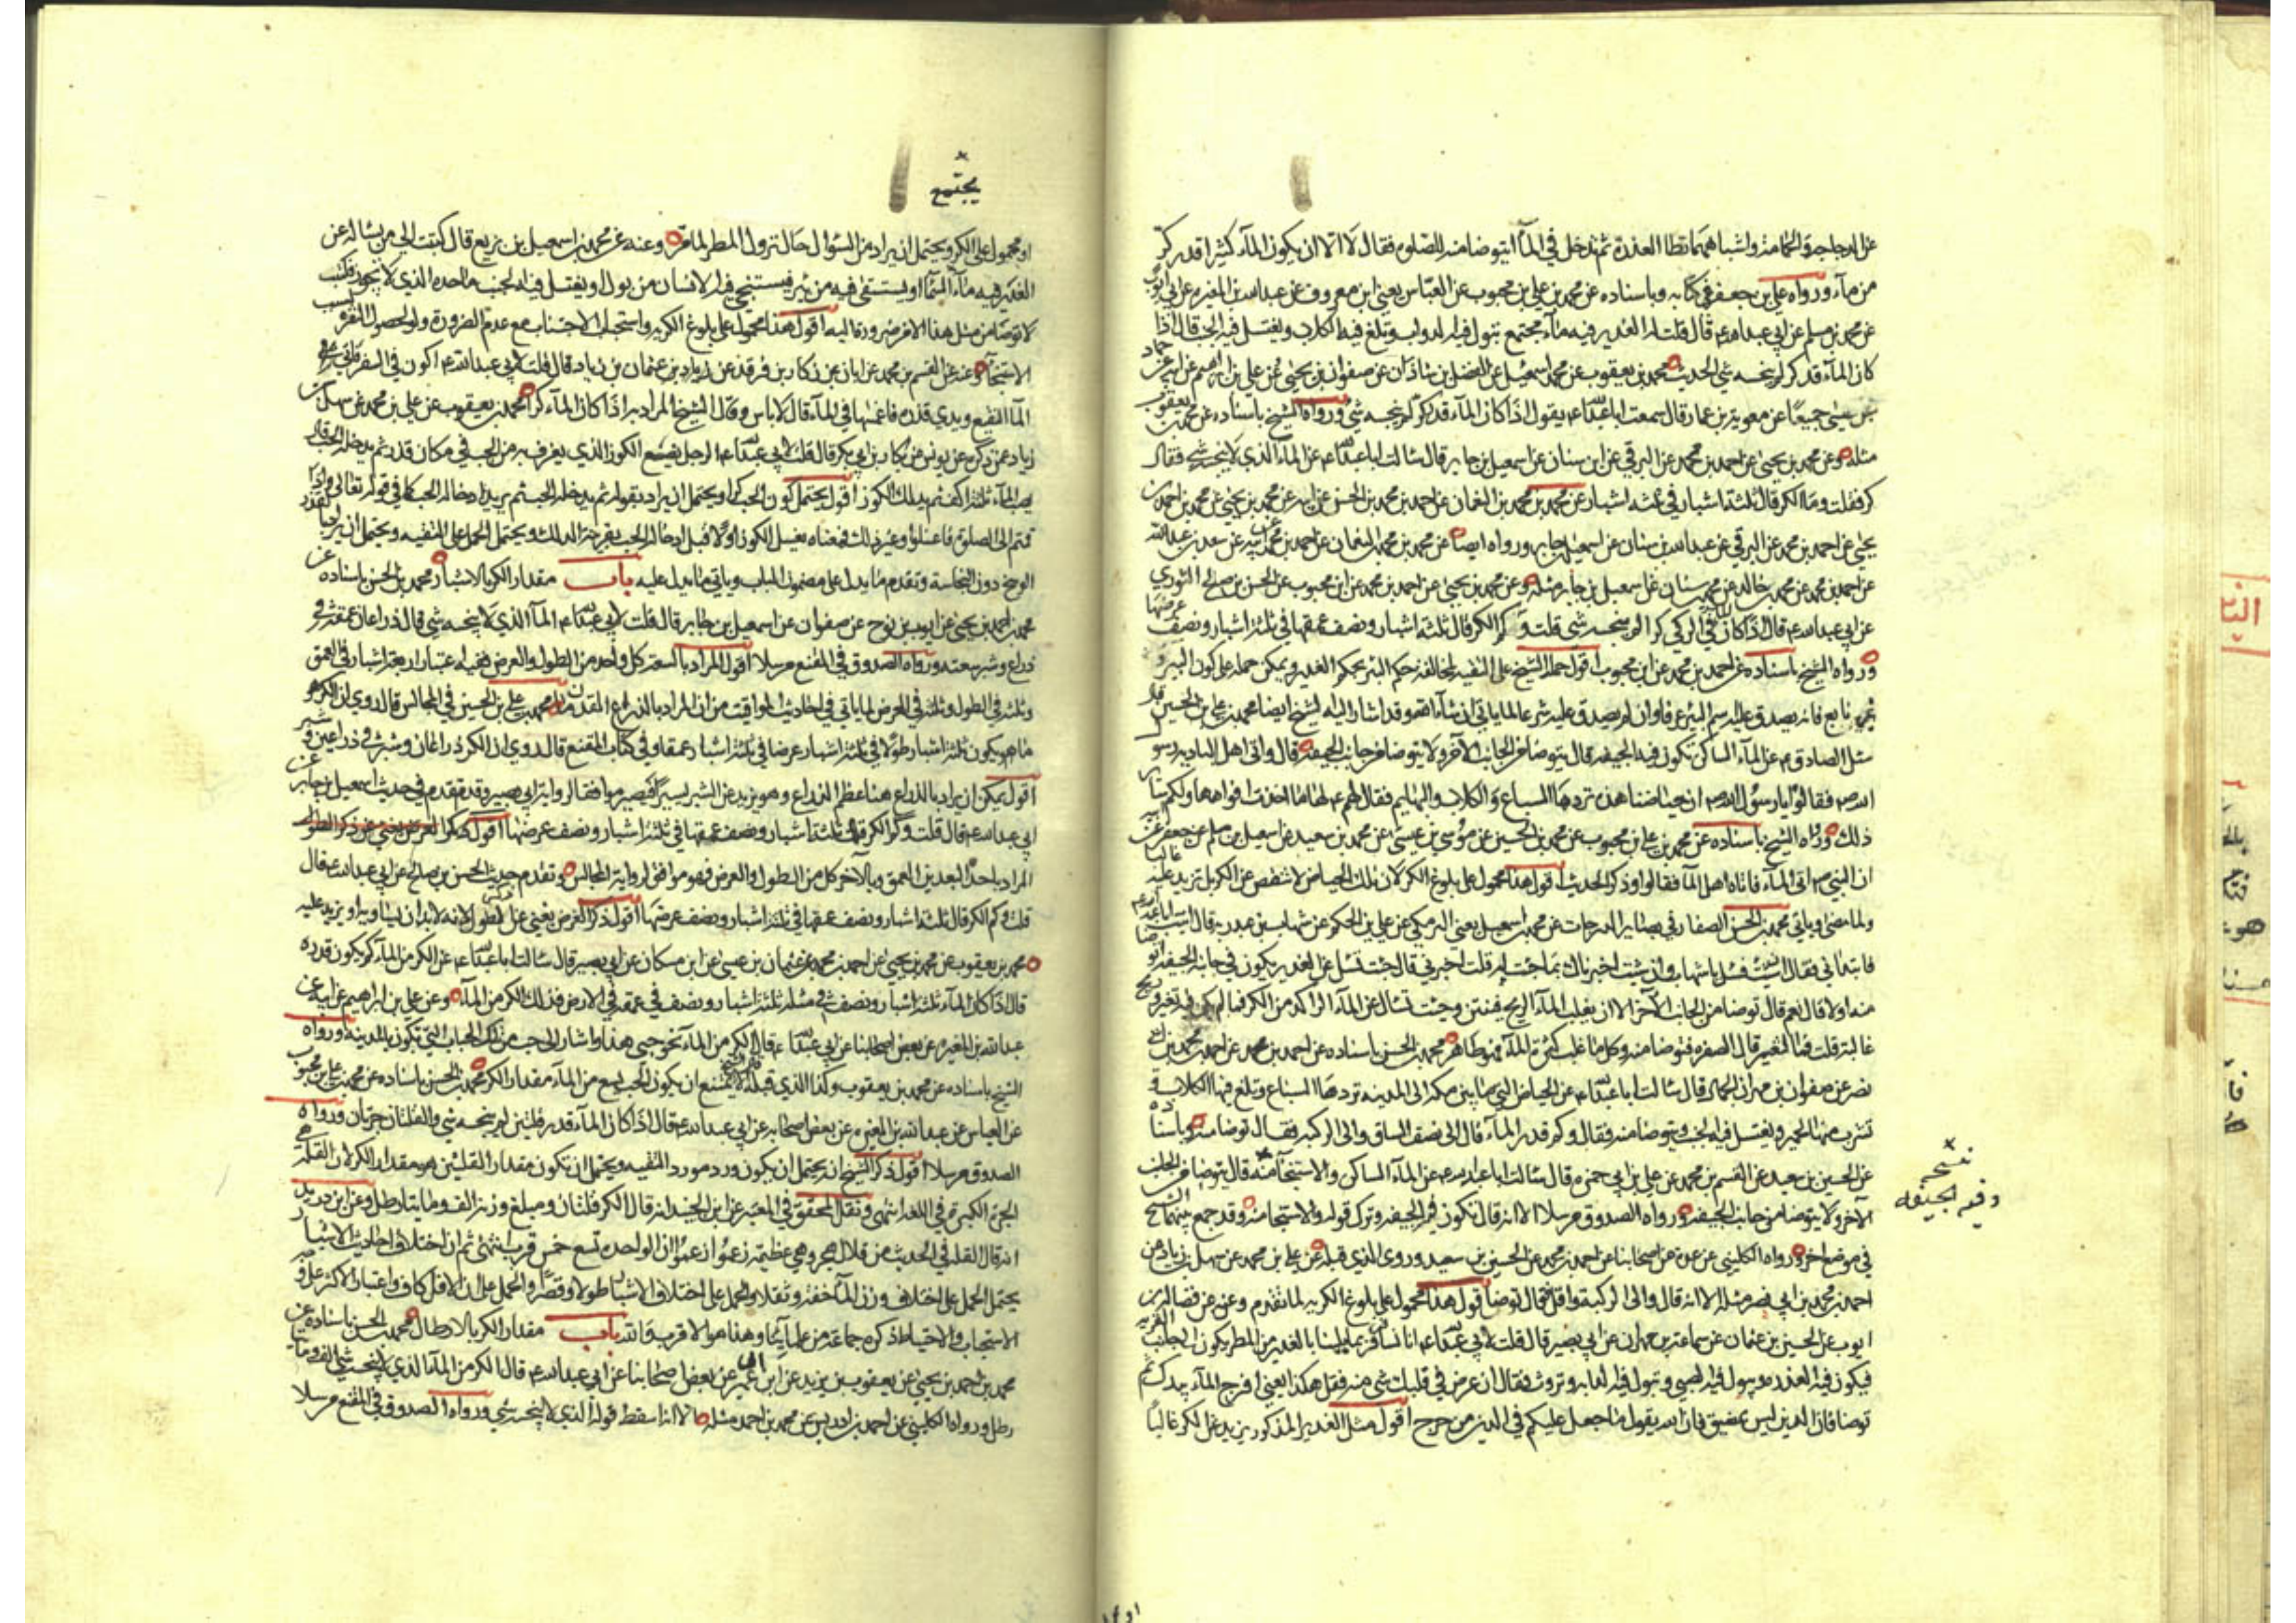 عن الدجاجة والحمامة واشباههما تطا العذرة ثم تدخل في الماء ايتوضا منه للصلوة فقال لا الا ان يكون الماء كثيرا قدر كر
من ماء ورواه علي بن جعفر في كتابه وباسناده عن محمد بن علي بن محبوب عن العباس يعني ابن معروف عن عبدالله بن المغيرة عن ابي ايوب
عن محمد بن مسلم عن ابي عبدالله ع قال قلت له الغدير فيه ماء مجتمع تبول فيه الدواب وتلغ فيه الكلاب ويغتسل فيه الجنب قال اذا
كان الماء قدر كر لم ينجسه شي الحديث محمد بن يعقوب عن محمد بن اسمعيل عن الفضل بن شاذان عن صفوان بن يحيى وعن علي بن ابراهيم عن ابيه عن حماد
بن عيسى جميعا عن معوية بن عمار قال سمعت ابا عبدالله ع يقول اذا كان الماء قدر كر لم ينجسه شي ورواه الشيخ باسناده عن محمد بن يعقوب
مثله وعن محمد بن يحيى عن احمد بن محمد عن البرقي عن ابن سنان عن اسمعيل بن جابر قال سالت ابا عبدالله ع عن الماء الذي لا ينجسه شي فقال
كر فقلت وما الكر قال ثلثة اشبار في ثلثة اشبار عن محمد بن محمد بن النعمان عن احمد بن محمد بن الحسن عن ابيه عن محمد بن يحيى عن محمد بن احمد بن
يحيى عن احمد بن محمد عن البرقي عن عبدالله بن سنان عن اسمعيل بن جابر ورواه ايضا عن محمد بن محمد بن النعمان عن احمد بن محمد عن ابيه عن سعد بن عبدالله
عن احمد بن محمد عن محمد بن خالد عن محمد بن سنان عن اسمعيل بن جابر مثله وعن محمد بن يحيى عن احمد بن محمد عن ابن محبوب عن الحسن بن صالح الثوري
عن ابي عبدالله ع قال اذا كان الماء في الركي كرا لم ينجسه شي قلت وكم الكر قال ثلثة اشبار ونصف عمقها في ثلثة اشبار ونصف عرضها
ورواه الشيخ باسناده عن احمد بن محمد عن ابن محبوب اقول حمله الشيخ على التقية لمخالفته حكم البئر بحكم الغدير ويمكن حمله على كون البئر
غير نابع فانه يصدق عليه اسم البئر عرفا وان لم يصدق عليه شرعا لما ياتي ان شاء الله وقد اشار اليه الشيخ ايضا محمد بن علي بن الحسين قال
سئل الصادق ع عن الماء الساكن تكون فيه الجيفة قال يتوضا من الجانب الآخر ولا يتوضا من جانب الجيفة قال واتى اهل البادية رسول
الله ص فقالوا يا رسول الله ان حياضنا هذه تردها السباع والكلاب والبهايم فقال لهم ع لها ما اخذت افواهها ولكم ساير
ذلك ورواه الشيخ باسناده عن محمد بن علي بن محبوب عن محمد بن الحسين عن موسى بن عيسى عن محمد بن سعيد عن اسمعيل بن مسلم عن جعفر عن ابيه
ان النبي ص اتى الماء فاتاه اهل الماء فقالوا وذكر الحديث اقول هذا محمول على بلوغ الكر لان تلك الحياض لا تنقص عن الكر بل تزيد عليه غالبا
ولما مضى وياتي محمد بن الحسن الصفار في بصاير الدرجات عن محمد بن اسمعيل يعني البرمكي عن علي بن الحكم عن شهاب بن عبد ربه قال اتيت ابا عبدالله ع
فابتداني فقال ان شئت فسل يا شهاب وان شئت اخبرناك بما جئت له قلت اخبرني قال جئت تسئل عن الغدير يكون في جانبه الجيفة اتوضا
منه او لا قال نعم قال توضا من الجانب الآخر الا ان يغلب الماء الريح فينتن وجئت تسال عن الماء الراكد من الكر فما لم يكن فيه تغير وريح
غالبة قلت فما التغير قال الصفرة فتوضا منه وكل ما غلب كثرة الماء فهو طاهر محمد بن الحسن باسناده عن احمد بن محمد عن احمد بن محمد بن ابي
نصر عن صفوان بن مهران الجمال قال سالت ابا عبدالله ع عن الحياض التي ما بين مكة الى المدينة تردها السباع وتلغ فيها الكلاب و
تشرب منها الحمير ويغتسل فيه الجنب ويتوضا منه فقال وكم قدر الماء قال الى نصف الساق والى الركبة فقال توضا منه وباسناده
عن الحسين بن سعيد عن القسم بن محمد عن علي بن ابي حمزة قال سالت ابا عبدالله ع عن الماء الساكن والاستنجاء منه قال توضا من الجانب
الآخر ولا يتوضا من جانب الجيفة ورواه الصدوق مرسلا الا انه قال تكون فيه الجيفة وترك قوله والاستنجا منه وقد جمع بينهما الشيخ
في موضع اخر ورواه الكليني عن عدة من اصحابنا عن احمد بن محمد عن الحسين بن سعيد وروى الذي قبله عن علي بن محمد عن سهل بن زياد عن
احمد بن محمد بن ابي نصر مثله الا انه قال والى الركبة واقل قال توضا اقول هذا محمول على بلوغ الكرية لما تقدم وعنه عن فضالة بن
ايوب عن الحسين بن عثمان عن سماعة بن مهران عن ابي بصير قال قلت لابي عبدالله ع انا نسافر فربما بلينا بالغدير من المطر يكون الى جانب القرية
فيكون فيه العذرة ويبول فيه الصبي وتبول فيه الدابة وتروث فقال ان عرض في قلبك شي منه فقل هكذا يعني افرج الماء بيدك ثم
توضا فان الدين ليس بمضيق فان الله يقول ما جعل عليكم في الدين من حرج اقول مثل الغدير المذكور يزيد عن الكر غالبا
نسخه
وفيه الجيفه
يجتمع
او محمول على الكر ويحتمل ان يراد من السؤال حال نزول المطر لما مر وعنه عن محمد بن اسمعيل بن بزيع قال كتبت الى من يساله عن
الغدير فيه ماء السماء او يستقى فيه من بئر فيستنجي فيه الانسان من بول او يغتسل فيه الجنب ما حده الذي لا يجوز فكتب
لا توضا من مثل هذا الا من ضرورة اليه اقول هذا محمول على بلوغ الكرية واستحباب الاجتناب مع عدم الضرورة ولو لحصول النفرة بسبب
الاستنجاء وعنه عن القسم بن محمد عن ابان عن زكار بن فرقد عن عثمان بن زياد قال قلت لابي عبدالله ع اكون في السفر فاتي
الماء النقيع ويدي قذرة فاغمسها في الماء قال لا باس وقال الشيخ المراد به اذا كان الماء كرا محمد بن يعقوب عن علي بن محمد عن سهل بن
زياد عمن ذكره عن يونس عن بكار بن ابي بكر قال قلت لابي عبدالله ع الرجل يضع الكوز الذي يغرف به من الحب في مكان قذر ثم يدخله الحب قال
يصب الماء ثلثة اكف ثم يدلك الكوز اقول يحتمل كون الحب كرا ويحتمل ان يراد بقوله ثم يدخله الحب ثم يريد ادخاله الحب كما في قوله تعالى واذا
قمتم الى الصلوة فاغسلوا وغير ذلك فمعناه يغسل الكوز اولا قبل ادخاله الحب بقرينة الدلك ويحتمل الحمل على التقية ويحتمل ان يراد بالقذر
الوسخ دون النجاسة وتقدم ما يدل على مضمون الباب وياتي ما يدل عليه باب مقدار الكر بالاشبار محمد بن الحسن باسناده عن
محمد بن احمد بن يحيى عن ايوب بن نوح عن صفوان عن اسمعيل بن جابر قال قلت لابي عبدالله ع الماء الذي لا ينجسه شي قال ذراعان عمقه في
ذراع وشبر سعته ورواه الصدوق في المقنع مرسلا اقول المراد بالسعة كل واحد من الطول والعرض ففيه اعتبار اربعة اشبار في العمق
وثلثة في الطول وثلثة في العرض لما ياتي في احاديث المواقيت من ان المراد بالذراع القدمان محمد بن علي بن الحسين في المجالس قال روي ان الكر هو
ما يكون ثلثة اشبار طولا في ثلثة اشبار عرضا في ثلثة اشبار عمقا وفي كتاب المقنع قال روي ان الكر ذراعان وشبر في ذراعين وشبر
اقول يمكن ان يراد بالذراع هنا عظم الذراع وهو يزيد عن الشبر يسيرا فيصير موافقا لرواية ابي بصير وقد تقدم في حديث اسمعيل بن جابر عن
ابي عبدالله ع قال قلت وكم الكر قال ثلثة اشبار ونصف عمقها في ثلثة اشبار ونصف عرضها اقول ذكر العرض يغني عن ذكر الطول
المراد باحد البعدين العمق وبالآخر كل من الطول والعرض فهو موافق لرواية المجالس وتقدم حديث الحسن بن صالح عن ابي عبدالله ع قال
قلت وكم الكر قال ثلثة اشبار ونصف عمقها في ثلثة اشبار ونصف عرضها اقول ذكر العرض يغني عن الطول لانه لا بد ان يساويه او يزيد عليه
محمد بن يعقوب عن محمد بن يحيى عن احمد بن محمد عن عثمان بن عيسى عن ابن مسكان عن ابي بصير قال سالت ابا عبدالله ع عن الكر من الماء كم يكون قدره
قال اذا كان الماء ثلثة اشبار ونصف في مثله ثلثة اشبار ونصف في عمقه في الارض فذلك الكر من الماء وعن علي بن ابراهيم عن ابيه عن
عبدالله بن المغيرة عن بعض اصحابنا عن ابي عبدالله ع قال الكر من الماء نحو حبي هذا واشار الى حب من تلك الحباب التي تكون بالمدينة ورواه
الشيخ باسناده عن محمد بن يعقوب وكذا الذي قبله لا يمتنع ان يكون الحب يسع من الماء مقدار الكر محمد بن الحسن باسناده عن محمد بن علي بن محبوب
عن العباس عن عبدالله بن المغيرة عن بعض اصحابه عن ابي عبدالله ع قال اذا كان الماء قدر قلتين لم ينجسه شي والقلتان جرتان ورواه
الصدوق مرسلا اقول ذكر الشيخ انه يحتمل ان يكون ورد مورد التقية ويحتمل ان يكون مقدار القلتين هو مقدار الكر لان القلة هي
الجرة الكبيرة في اللغة انتهى ونقل المحقق في المعتبر عن ابن الجنيد انه قال الكر قلتان ومبلغ وزنه الف ومايتا رطل وعن ابن دريد
انه قال القلة في الحديث من قلال هجر وهي عظيمة زعموا ان الواحدة تسع خمس قرب انتهى ثم ان اختلاف احاديث الاشبار
يحتمل الحمل على اختلاف وزن الماء خفة وثقلا والحمل على اختلاف الاشبار طولا وقصرا والحمل على ان الاقل كاف واعتبار الاكثر على وجه
الاستحباب والاحتياط ذكره جماعة من علمائنا وهذا هو الاقرب والله باب مقدار الكر بالارطال محمد بن الحسن باسناده عن
محمد بن احمد بن يحيى عن يعقوب بن يزيد عن ابن ابي عمير عن بعض اصحابنا عن ابي عبدالله ع قال الكر من الماء الذي لا ينجسه شي الف ومايتا
رطل ورواه الكليني عن احمد بن ادريس عن محمد بن احمد مثله الا انه اسقط قوله الذي لا ينجسه شي ورواه الصدوق في المقنع مرسلا